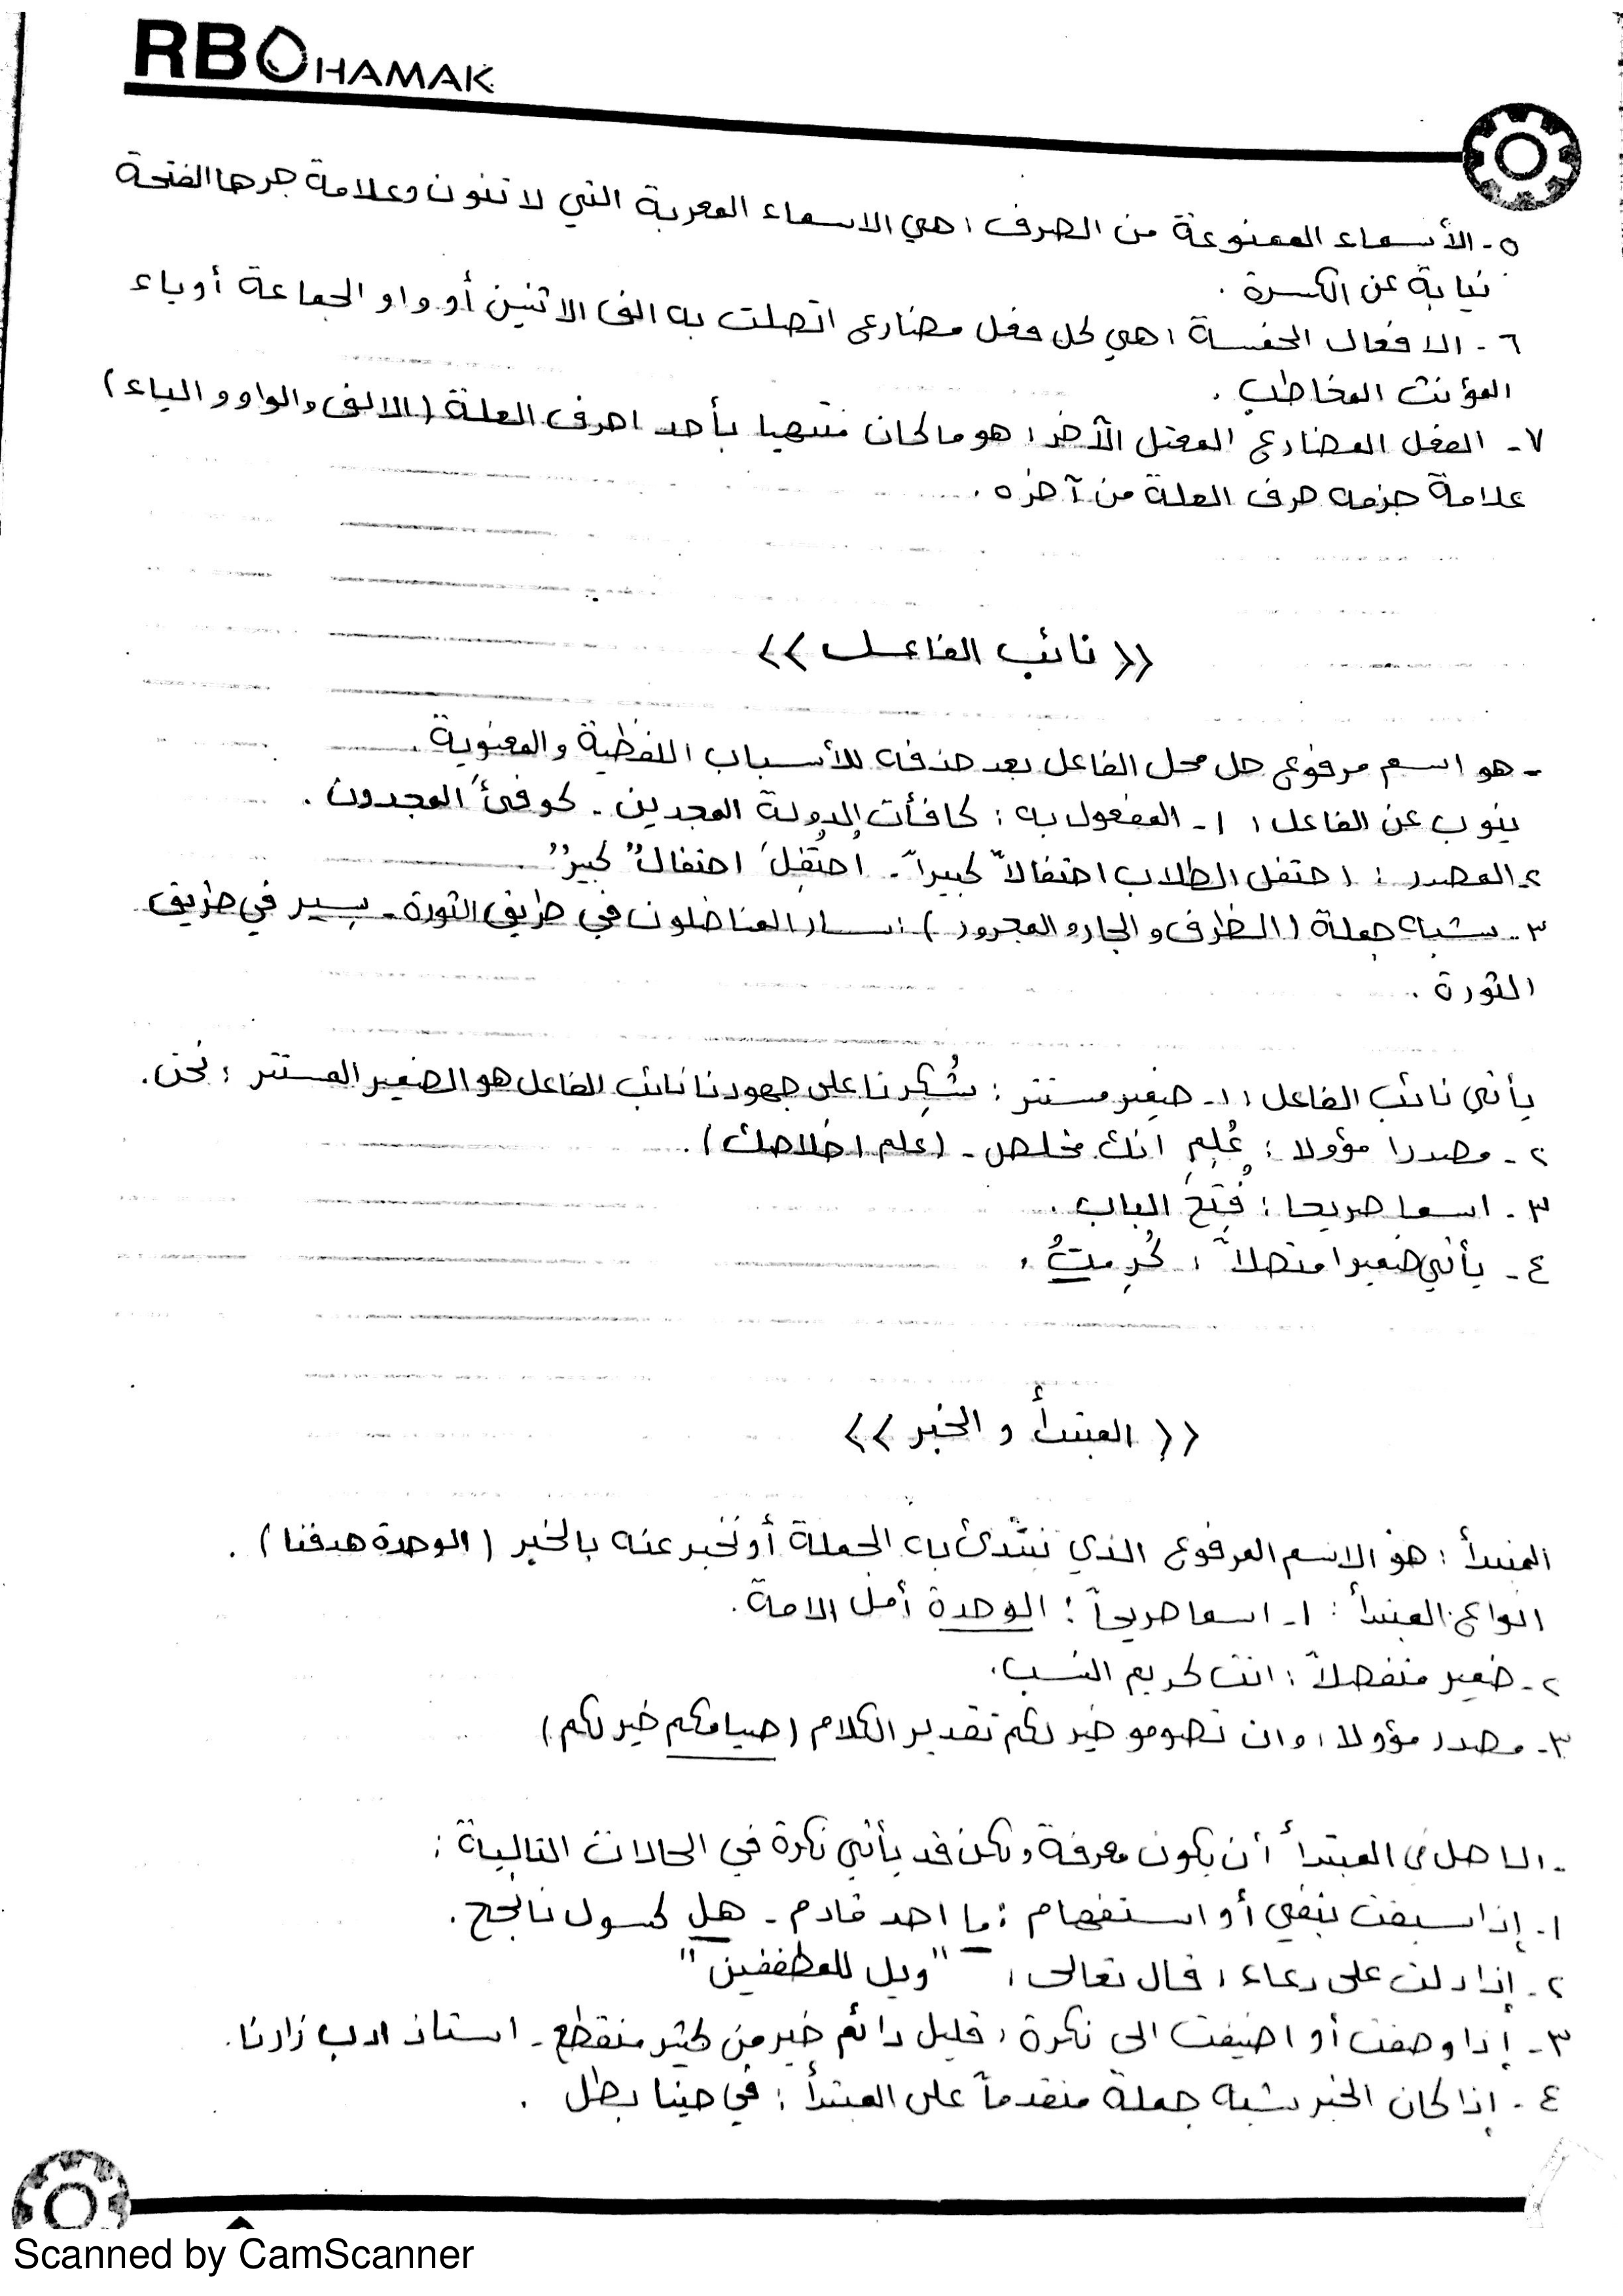 RBOHAMAK
٥- الأسماء الممنوعة من الصرف: هي الاسماء المعربة التي لا تنون وعلامة جرها الفتحة
نيابة عن الكسرة .
٦- الافعال الخمسة: هي كل فعل مضارع اتصلت به الف الاثنين أو واو الجماعة أو ياء
المؤنث المخاطب .
٧- الفعل المضارع المعتل الآخر: هو ما كان منتهيا بأحد احرف العلة (الالف والواو والياء)
علامة جزمه حرف العلة من آخره .
<< نائب الفاعل >>
- هو اسم مرفوع حل محل الفاعل بعد حذفه للأسباب اللفظية والمعنوية .
ينوب عن الفاعل: ١- المفعول به: كافأت الدولة المجدين - كوفئَ المجدون .
٢- المصدر: احتفل الطلاب احتفالاً كبيراً - اُحتُفِلَ احتفالٌ كبيرٌ
٣- شبه جملة (الظرف والجار والمجرور): سار المناضلون في طريق الثورة - يسير في طريق
الثورة .
يأتي نائب الفاعل: ١- ضمير مستتر: شُكِرنا على جهودنا نائب الفاعل هو الضمير المستتر: نحن .
٢- مصدرا مؤولا: عُلِمِ انك مخلص - (علم اخلاصك) .
٣- اسما صريحا: فُتِحَ الباب .
٤- يأتي ضميرا متصلاً: كُرِمتُ .
<< المبتدأ و الخبر >>
المبتدأ: هو الاسم المرفوع الذي نبتدئ به الجملة أو نخبر عنه بالخبر (الوحدة هدفنا) .
انواع المبتدأ: ١- اسما صريحاً: الوحدة أمل الامة .
٢- ضمير منفصلاً: انت كريم النسب .
٣- مصدر مؤولا: وان تصومو خير لكم تقدير الكلام (صيامكم خير لكم)
- الاصل في المبتدأ أن يكون معرفة ولكن قد يأتي نكرة في الحالات التالية :
١- إذا سبقت بنفي أو استفهام: ما احد قادم - هل كسول ناجح .
٢- إذا دلت على دعاء: قال تعالى: "ويل للمطففين"
٣- إذا وصفت أو اضيفت الى نكرة: قليل دائم خير من كثير منقطع - استاذ ادب زارنا .
٤- إذا كان الخبر شبه جملة متقدماً على المبتدأ: في حينا بطل .
Scanned by CamScanner